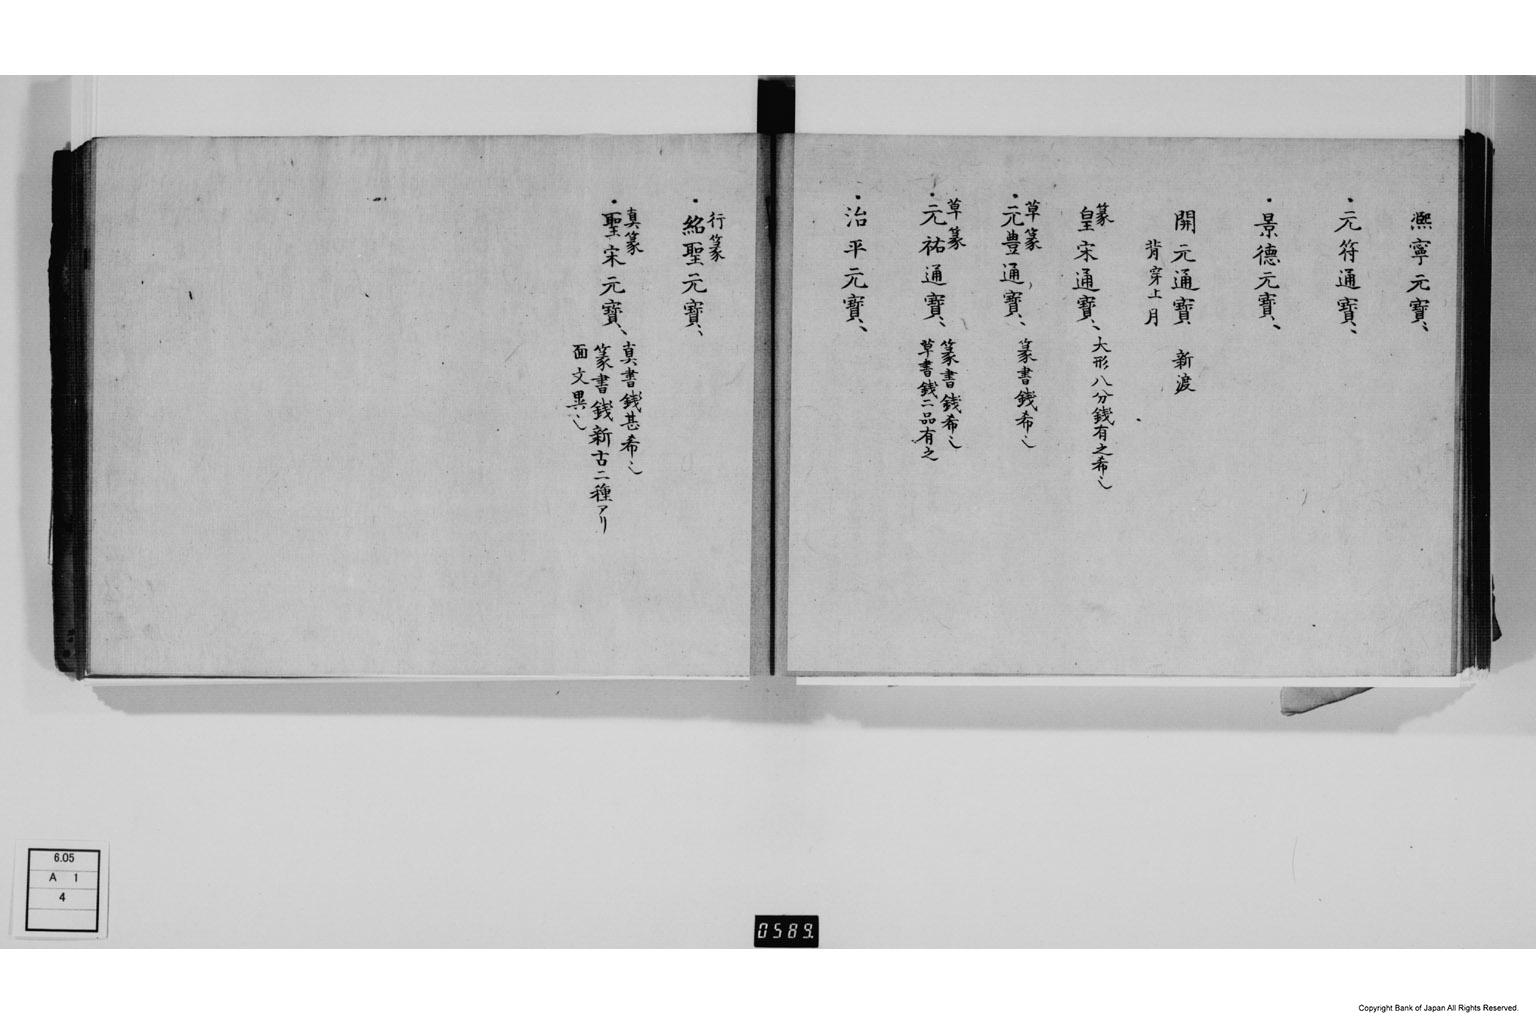 熈寧元寳、
・元符通寳、
・景德元寳、
開元通寳 新渡
背穿上月
篆
皇宋通寳、大形八分銭有之希也
草篆
・元豊通寳、篆書銭希也
草篆
・元祐通寳、篆書銭希也
草書銭二品有之
・治平元寳、
行篆
・紹聖元寳、
真篆
・聖宋元寳、真書銭甚希也
篆書銭新古二種アリ
面文異也
6.05
A 1
4
0589
Copyright Bank of Japan All Rights Reserved.